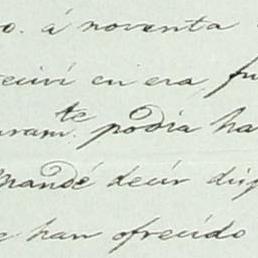 o. á noventa
en era, fu
uram.te podia ha
mandé decir disp
e han ofrecido